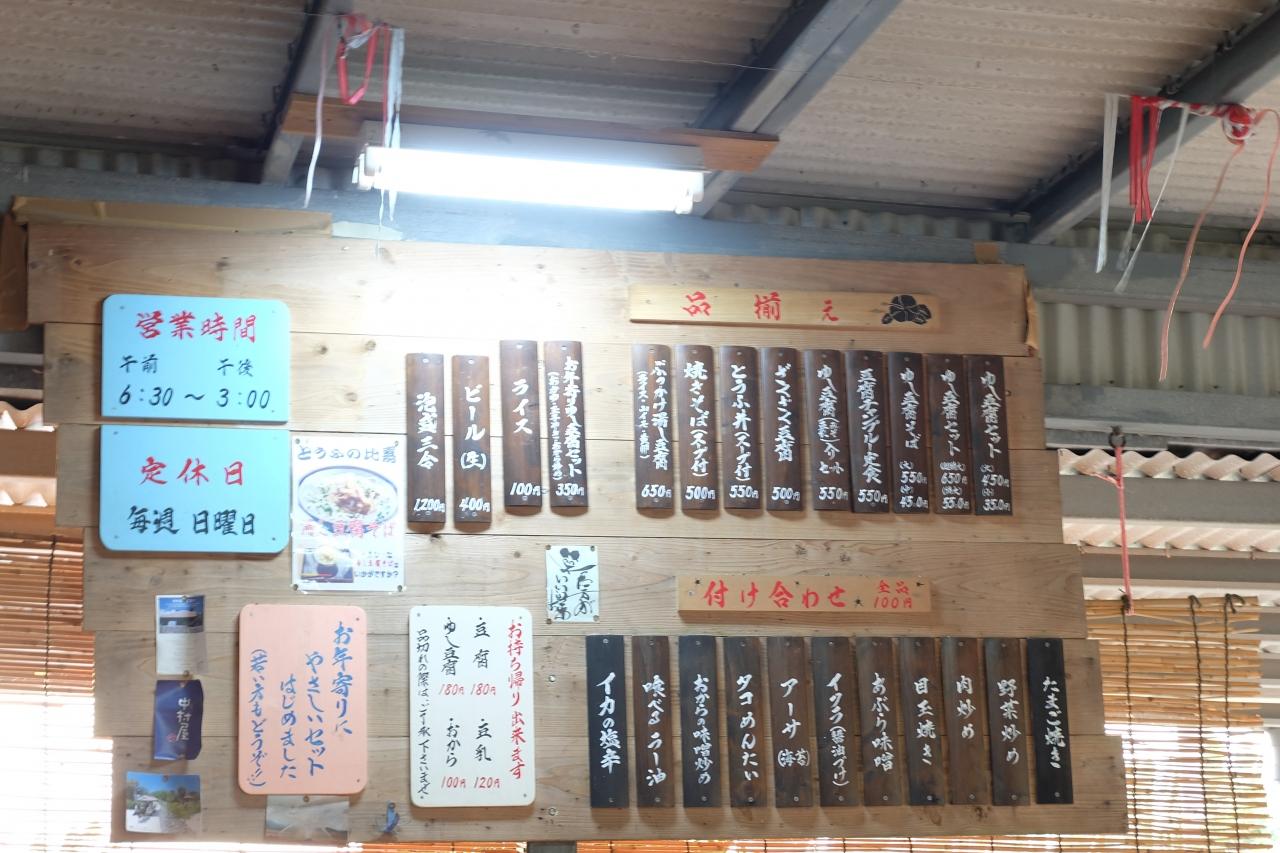 営業時間
午前 午後
6:30 ～ 3:00
定休日
毎週 日曜日
とうふの比嘉
いかがですか?
品揃え
ゆし豆腐セット
(大) 450円
(小) 350円
ゆし豆腐セット
650円
550円
ゆし豆腐そば
(大) 550円
(中) 450円
豆腐チャンプルー定食
550円
ゆし豆腐
セット
550円
ざるざる豆腐
500円
とうふ丼(スープ付)
550円
焼きそば(スープ付)
500円
ぶっかけ湯し豆腐
650円
お年寄りゆし豆腐セット
350円
ライス
100円
ビール(生)
400円
泡盛三合
1200円
付け合わせ 全品
100円
たまご焼き
野菜炒め
肉炒め
目玉焼き
あぶら味噌
イクラ(醤油づけ)
アーサ(海苔)
タコめんたい
おからの味噌炒め
喰べるラー油
イカの塩辛
お持ち帰り出来ます
豆腐 180円 豆乳 120円
ゆし豆腐 180円 おから 100円
品切れの際は、ご了承下さいませ。
お年寄りに
やさしいセット
はじめました
(若い方もどうぞ!!)
中村屋